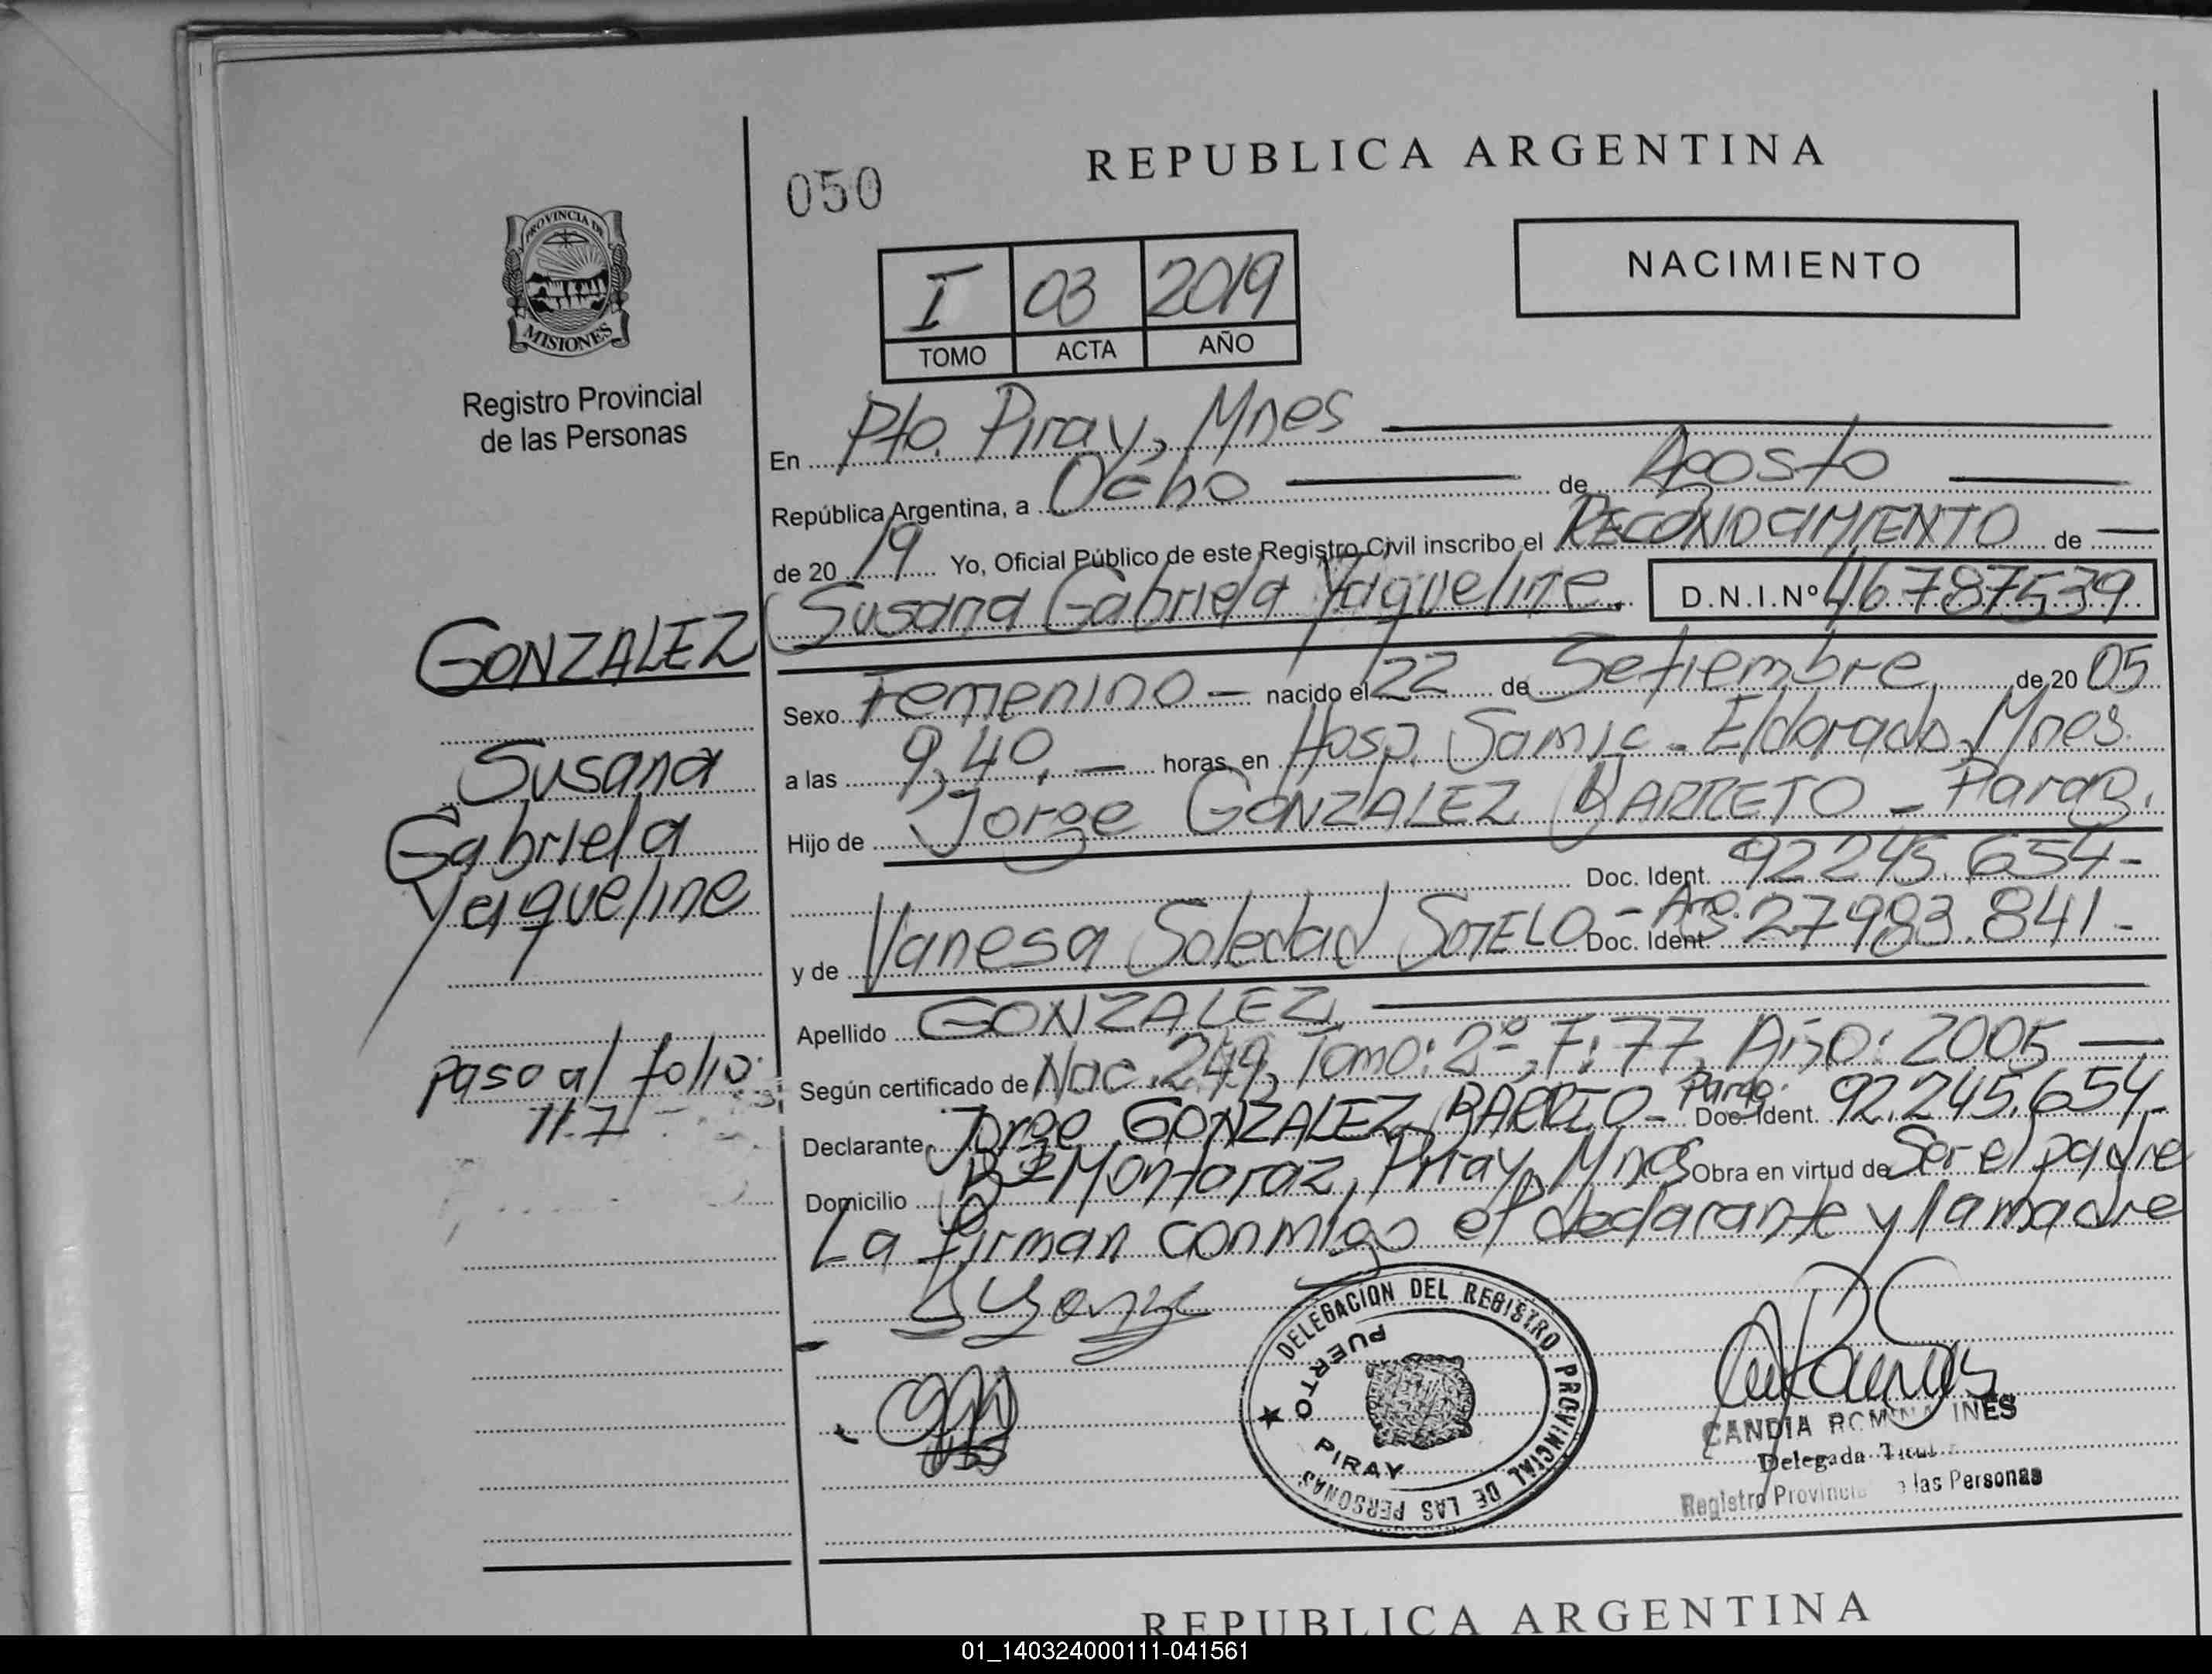 050
REPUBLICA ARGENTINA
NACIMIENTO
I 03 2019
TOMO ACTA AÑO
PROVINCIA DE
MISIONES
Registro Provincial
de las Personas
En Pto. Piray, Mnes
República Argentina, a Ocho de Agosto
de 20 19 Yo, Oficial Público de este Registro Civil inscribo el RECONOCIMIENTO de
Susana Gabriela Yaqueline. D.N.I.Nº 46.787539
GONZALEZ
Susana
Gabriela
Yaqueline
Sexo Femenino nacido el 22 de Setiembre de 20 05
a las 9,40. horas, en Hosp. Samic - Eldorado, Mnes.
Hijo de Jorge GONZALEZ BARRETO - Parag.
Doc. Ident. 92245.654-
y de Vanesa Soledad SOTELO - Arg. Doc. Ident. 27983.841-
Apellido GONZALEZ
paso al folio
117
Según certificado de Nac. 249, Tomo: 2º, F: 77, Año: 2005
Declarante Jorge GONZALEZ BARRETO - Parag. Doc. Ident. 92.245.654-
Domicilio Bº Montaraz, Piray, Mnes Obra en virtud de Ser el padre
La firman conmigo el declarante y la madre
DELEGACION DEL REGISTRO PROVINCIAL DE LAS PERSONAS
PUERTO PIRAY
CANDIA ROMINA INES
Delegada
Registro Provincial las Personas
REPUBLICA ARGENTINA
01_140324000111-041561